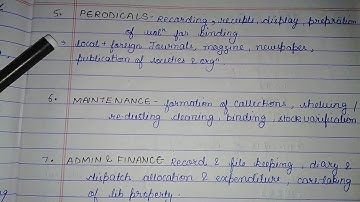 5. PERODICALS - Recording, reciepts, display, prepration
of uolⁿ for binding
⇒ local + foreign Journals, magzine, newspaper,
publication of societies & orgⁿ.
6. MAINTENANCE - formation of collections, shelving /
re-dusting cleaning, binding, stock varification
7. ADMIN & FINANCE - Record & file keeping, diary &
dispatch allocation & expenditure, care taking
of lib property.